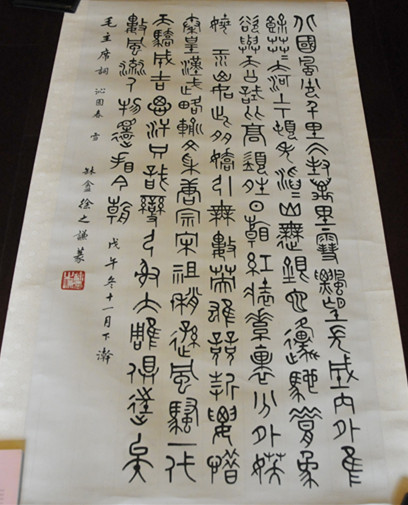 北國風光千里冰封萬里雪飄望長城內外惟
餘莽莽大河上下頓失滔滔山舞銀蛇原馳蠟象
欲與天公試比高須晴日看紅裝素裹分外妖
嬈江山如此多嬌引無數英雄競折腰惜
秦皇漢武略輸文采唐宗宋祖稍遜風騷一代
天驕成吉思汗只識彎弓射大雕俱往矣
數風流人物還看今朝 戊午冬十一月下澣
毛主席詞 沁園春 雪 盦徐之謙篆